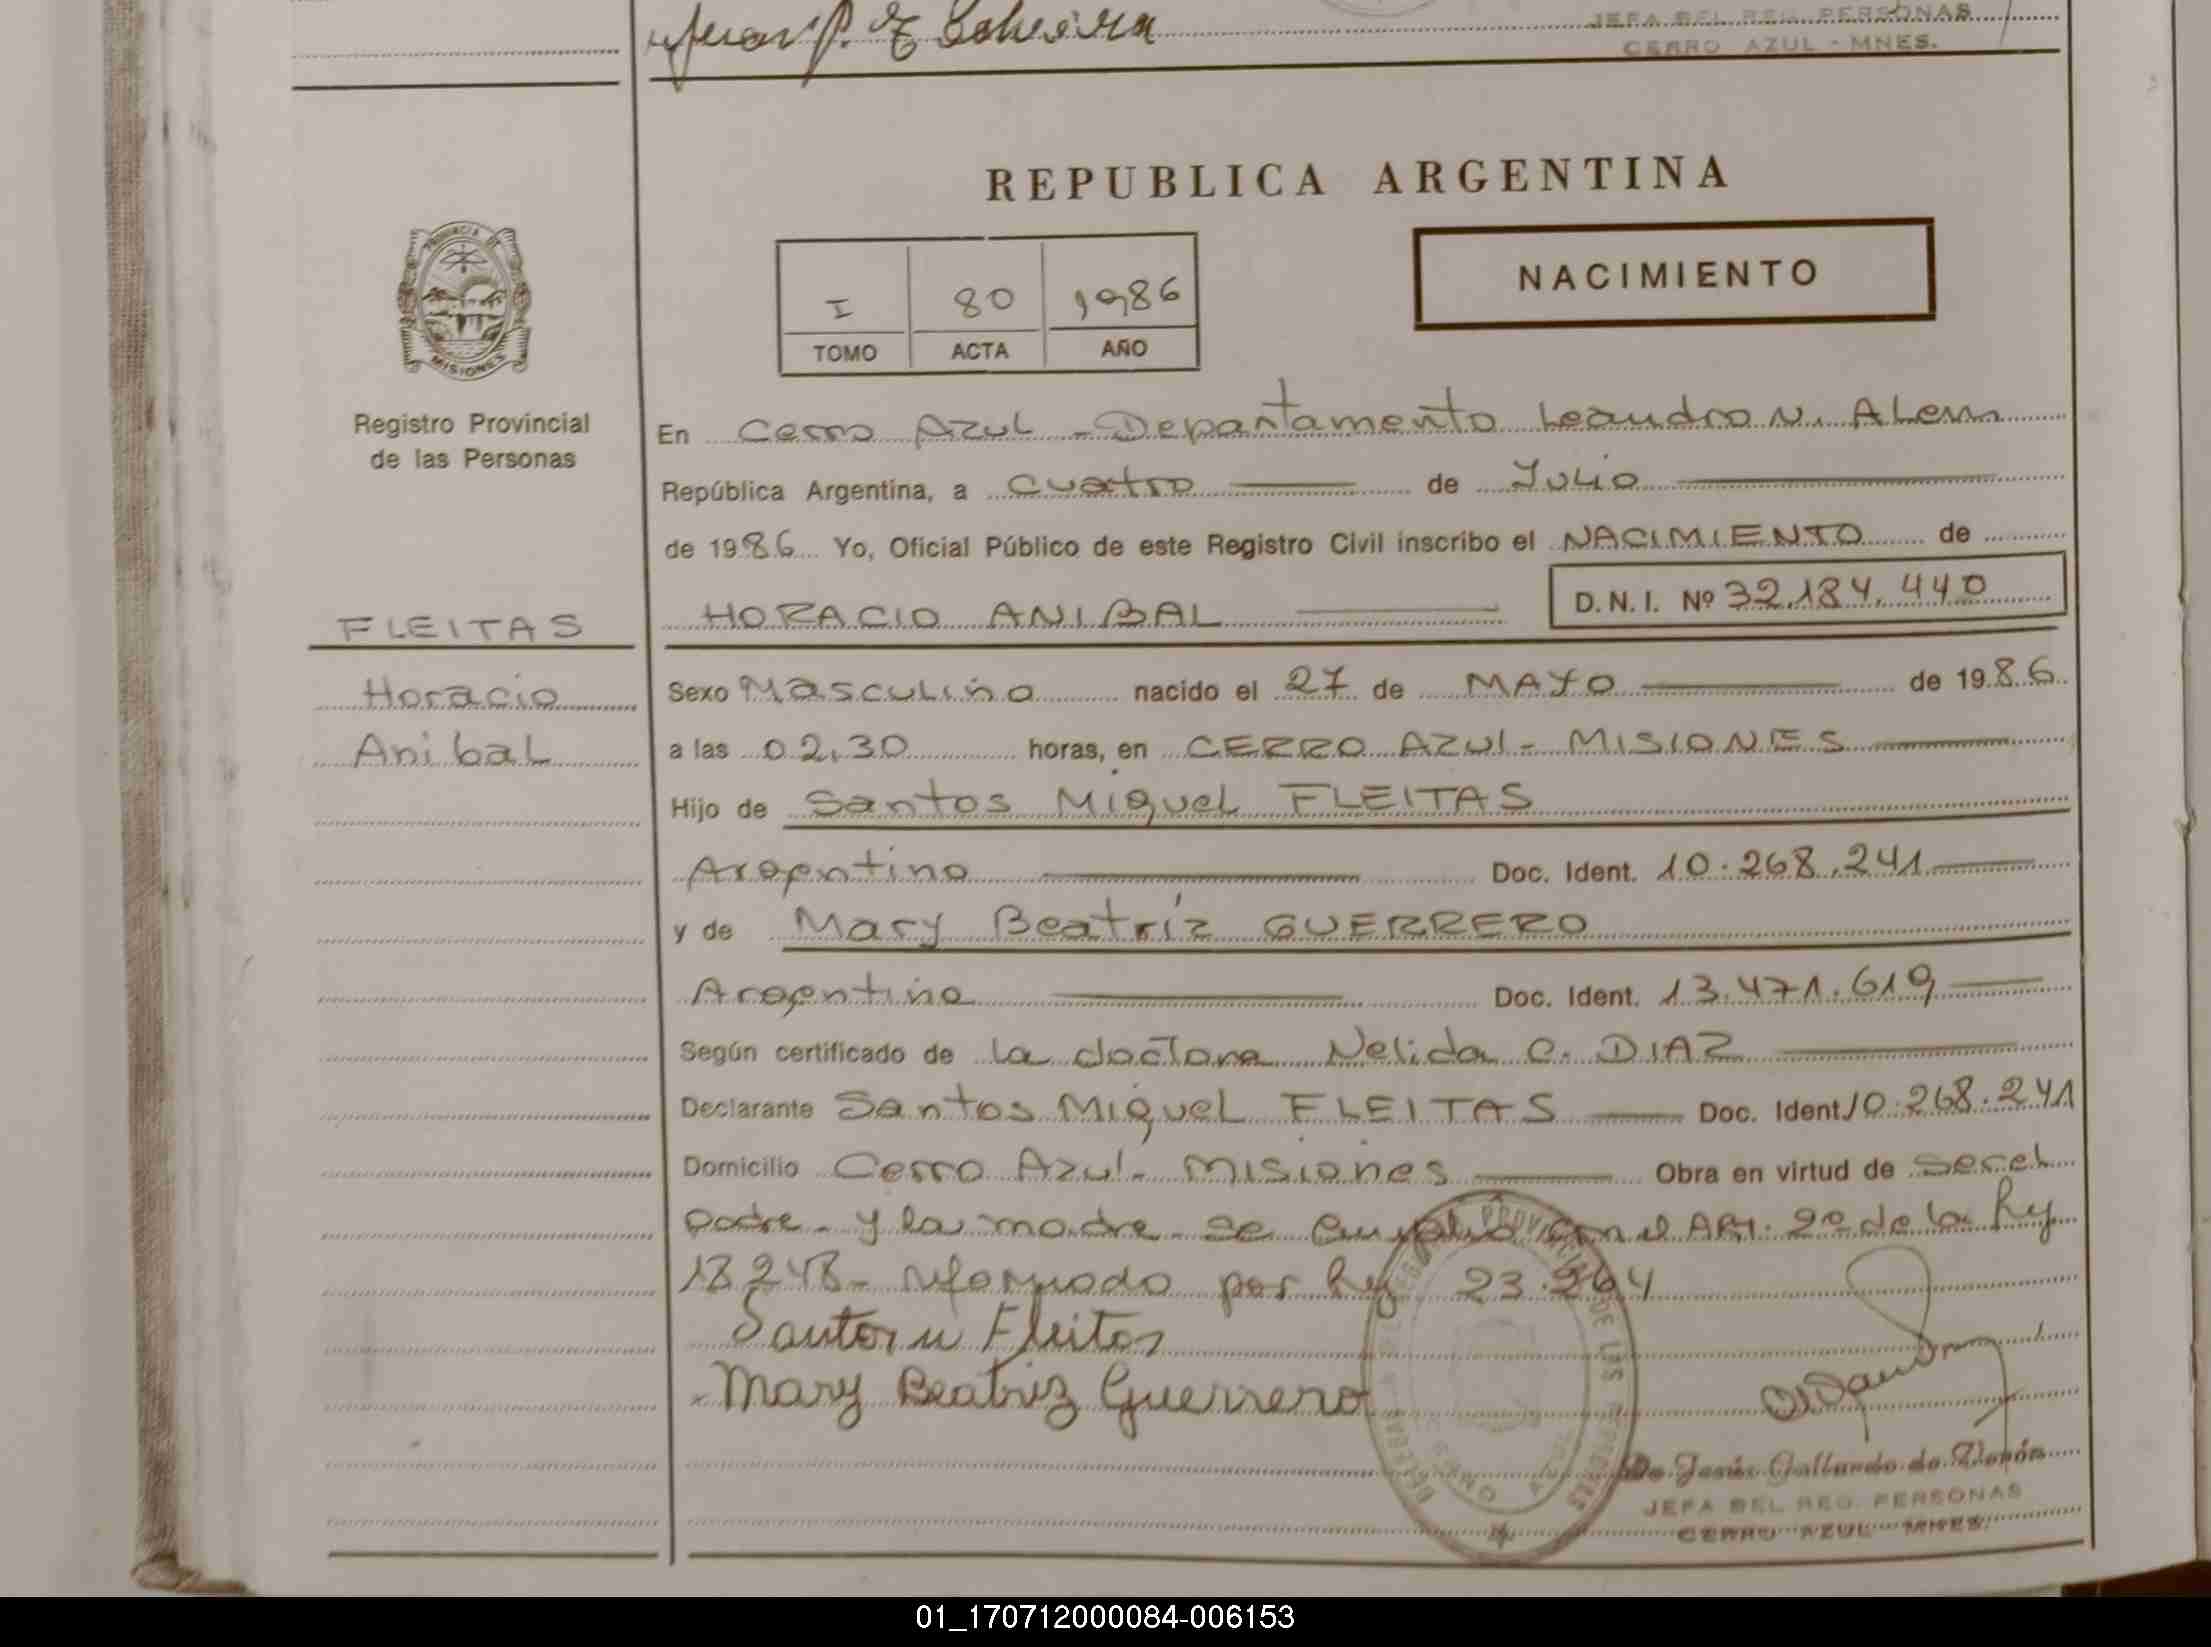 JEFA DEL REG. PERSONAS
CERRO AZUL - MNES.
REPUBLICA ARGENTINA
PROVINCIA DE
MISIONES
I 80 1986
TOMO ACTA AÑO
NACIMIENTO
Registro Provincial
de las Personas
En Cerro Azul - Departamento Leandro N. Alem
República Argentina, a cuatro de Julio
de 1986 Yo, Oficial Público de este Registro Civil inscribo el NACIMIENTO de
HORACIO ANIBAL D.N.I. Nº 32.184.440
FLEITAS
Horacio
Anibal
Sexo Masculino nacido el 27 de MAYO de 1986
a las 02,30 horas, en CERRO AZUL - MISIONES
Hijo de Santos Miguel FLEITAS
Argentino Doc. Ident. 10.268.241
y de Mary Beatríz GUERRERO
Argentina Doc. Ident. 13.471.619
Según certificado de la doctora Nelida C. DIAZ
Declarante Santos Miguel FLEITAS Doc. Ident. 10.268.241
Domicilio Cerro Azul - Misiones Obra en virtud de ser el
padre - y la madre - se cumplió con el Art. 2º de la ley
18248 - reformado por ley 23.264
Santos M Fleitas
Mary Beatriz Guerrero
JEFA DEL REG. PERSONAS
CERRO AZUL - MNES.
01_170712000084-006153